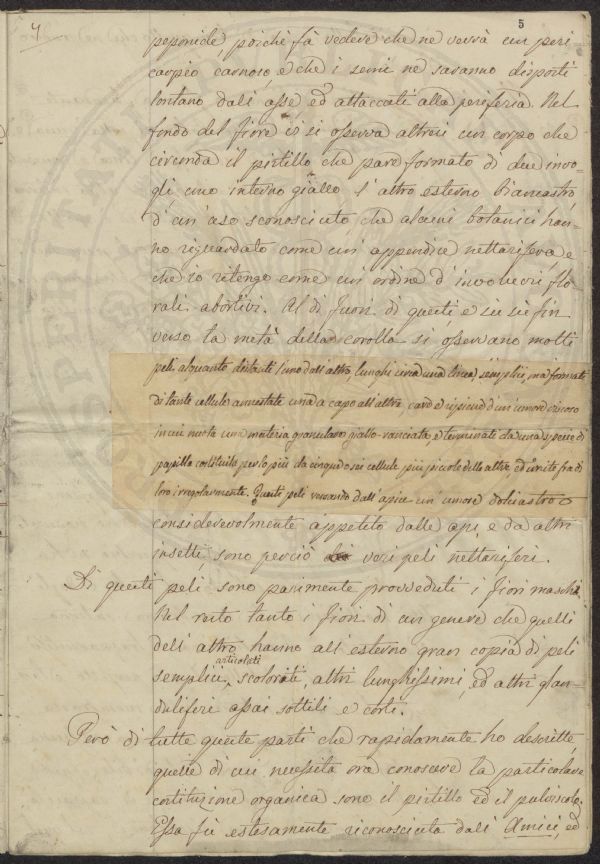 4
5
peponide, poichè fà vedere che ne verrà un peri
carpio carnoso, e che i semi ne saranno disposti
lontano dall'asse ed attaccati alla periferia. Nel
fondo del fiore vi si osserva altresì un corpo che
circonda il pistillo che pare formato di due invo-
gli, uno interno giallo l'altro esterno biancastro
d'un'uso sconosciuto che alcuni botanici han-
no riguardato come un'appendice nettarifera, e
che io ritengo come un'ordine d'involucri flo-
rali abortivi. Al di fuori di questi e su su fin
verso la metà della corolla si osservano molti
peli alquanto distanti l'uno dall'altro, lunghi circa una linea, semplici, ma formati
di tante cellule annestate una a capo all'altra, cavo e ripieno d'un'umore vinoso
in cui nuota una materia granulosa giallo-ranciata, e terminati da una specie di
papilla costituita per lo più da cinque o sei cellule più piccole delle altre, ed unite fra di
loro irregolarmente. Questi peli versando dall'apice un'umore dolciastro
considerevolmente appetito dalle api, e da altri
insetti, sono perciò veri peli nettariferi.
Di questi peli sono parimente provveduti i fiori maschi.
Nel resto tanto i fiori di un genere che quelli
dell'altro hanno all'esterno gran copia di peli
articolati
semplici, scolorati, altri lunghissimi, ed altri glan-
duliferi assai sottili e corti.
Però di tutte queste parti che rapidamente ho descritte,
quelle di cui necessita ora conoscere la particolare
costituzione organica sono il pistillo ed il polviscolo.
Essa fù estesamente riconosciuta dall'Amici, ed